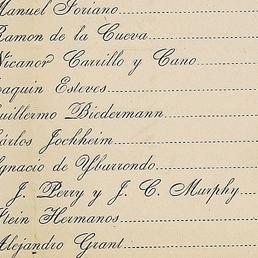 Manuel Soriano
Ramon de la Cueva
Nicanor Carrillo y Cano
Joaquin Esteves
Guillermo Biedermann
Carlos Jochheim
Ygnacio de Yburrondo
J. Perry y J. C. Murphy
Stein Hermanos
Alejandro Grant